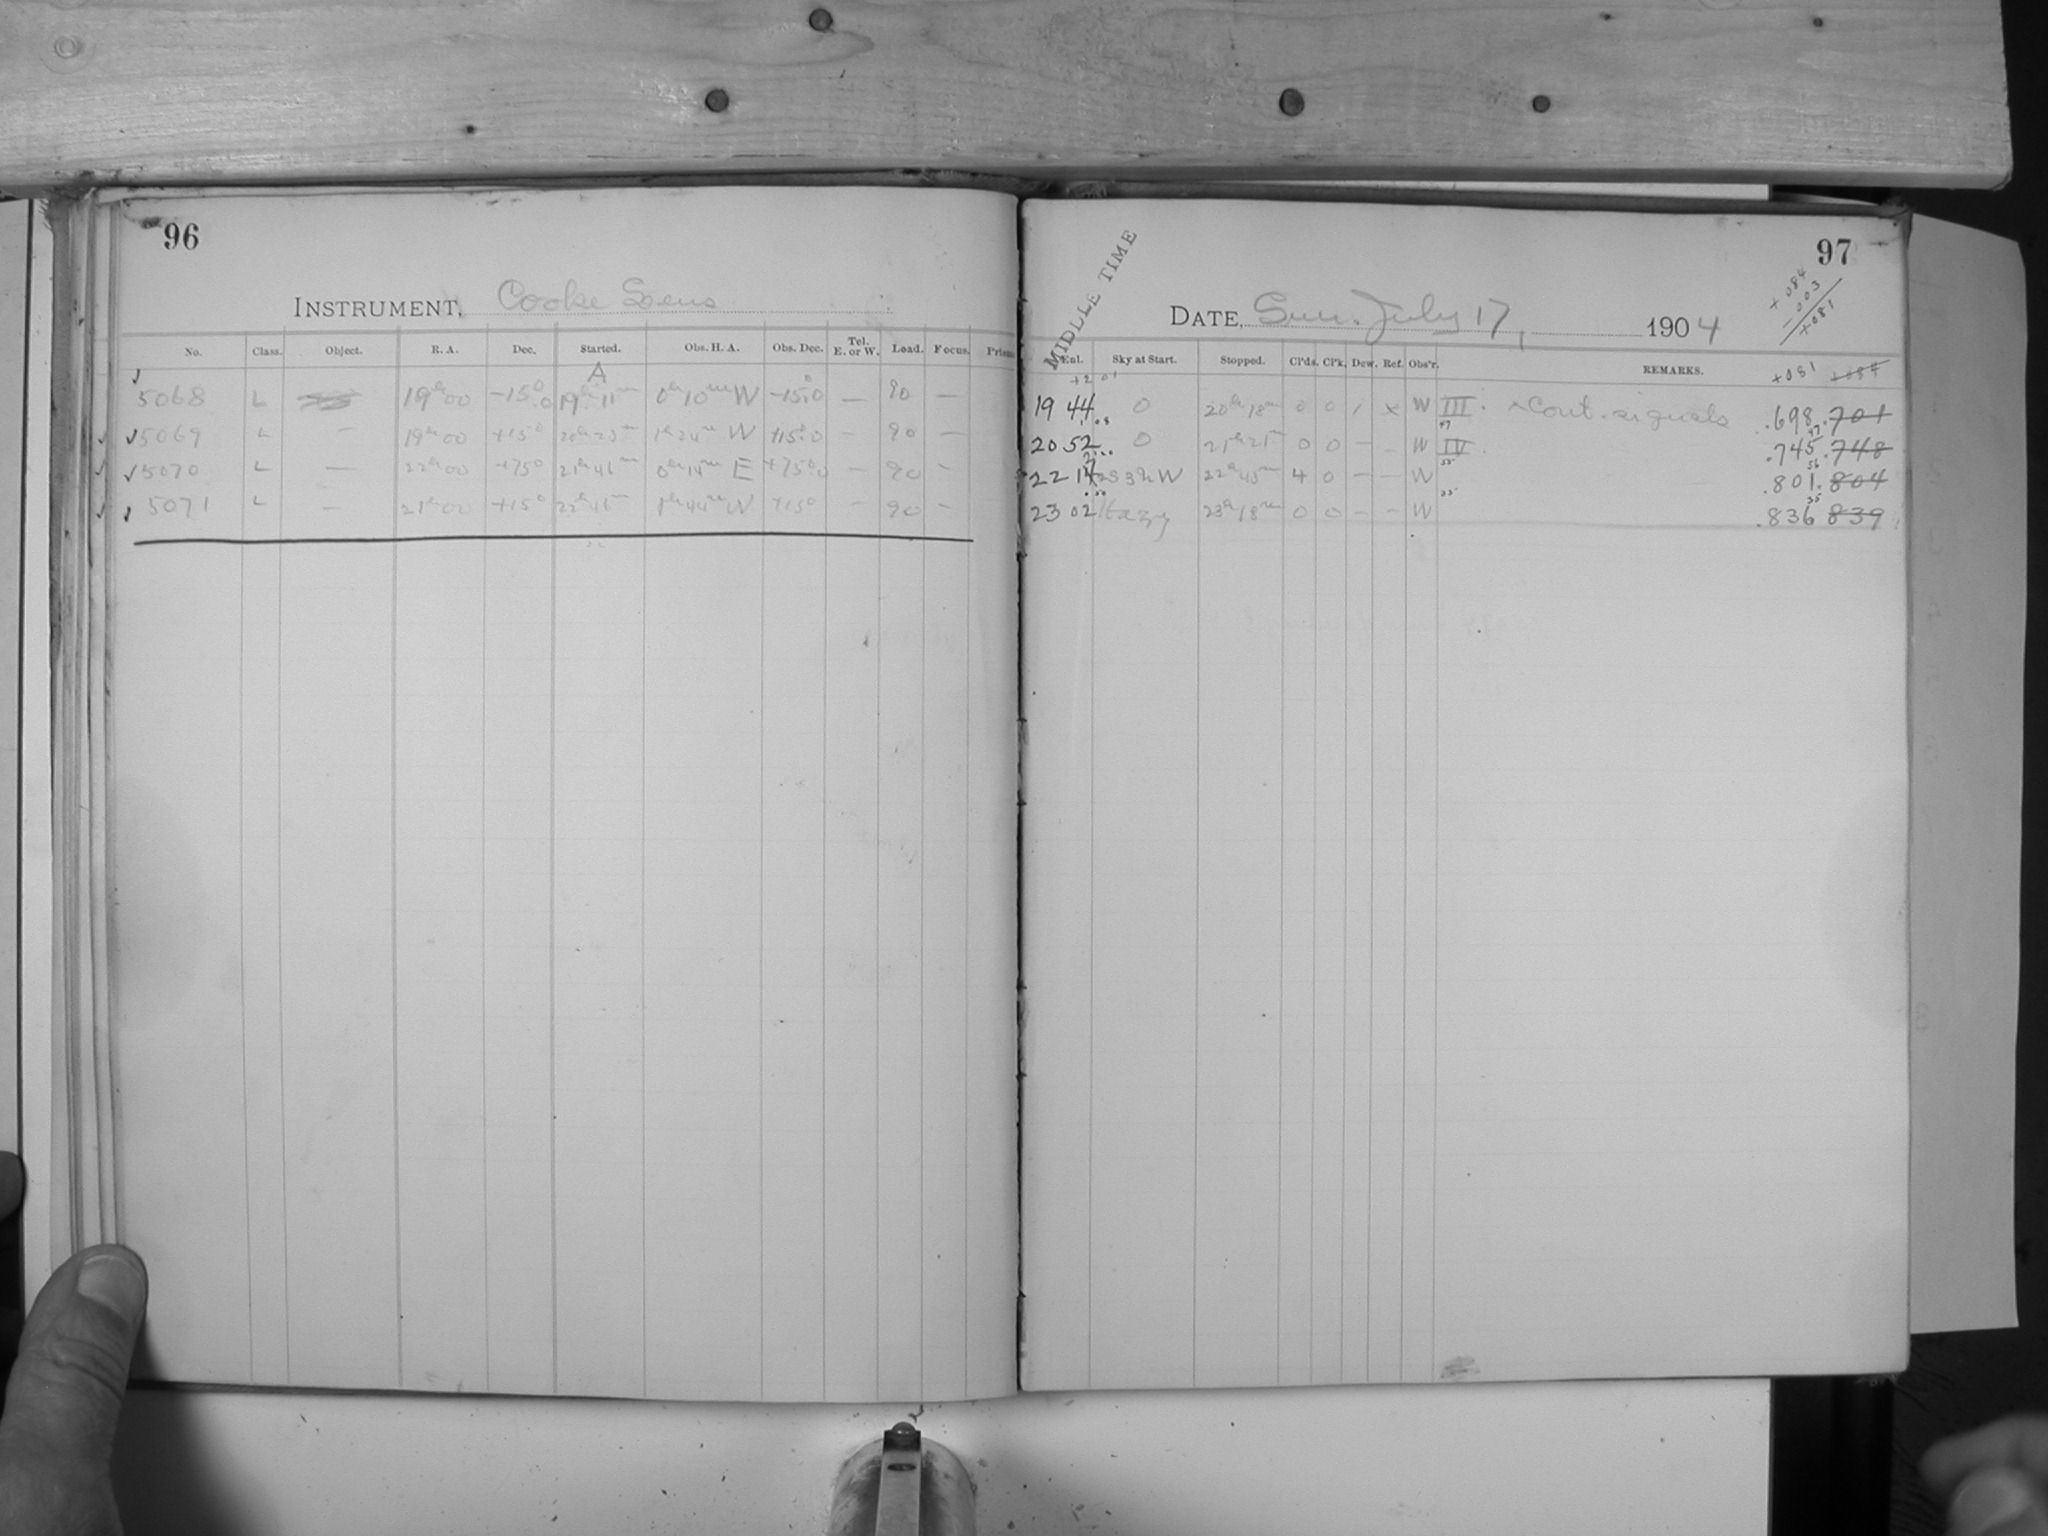 96
INSTRUMENT, Cooke Lens
No. Class. Object. R. A. Dec. Started. Obs. H. A. Obs. Dec. Tel. E. or W. Load. Focus. Prism
A
5068 L 19h00 -15°.0 19h11m 0h10m W -15°.0 — 90 —
√5069 L — 19h00 +15° 20h23m 1h24m W +15°.0 — 90 —
√5070 L — 22h00 +75° 21h46m 0h14m E +75°.0 — 90 —
√5071 L — 21h00 +15° 22h46m 1h44m W +15° — 90 —
97
MIDLLE TIME
+084
-003
+081
DATE, Sun. July 17, 1904
Ent. Sky at Start. Stopped. Cl'ds. Cl'k, Dew. Ref. Obs'r. REMARKS. +081 +084
19 44 0 20h18m 0 0 / x W III. x Cont. signals .698 .701
20 52 0 21h21m 0 0 — – W IV. .745 .748
22 14 22h45m 4 0 — — W .801 .804
23 02 Hazy 23h18m 0 0 – – W .836 839